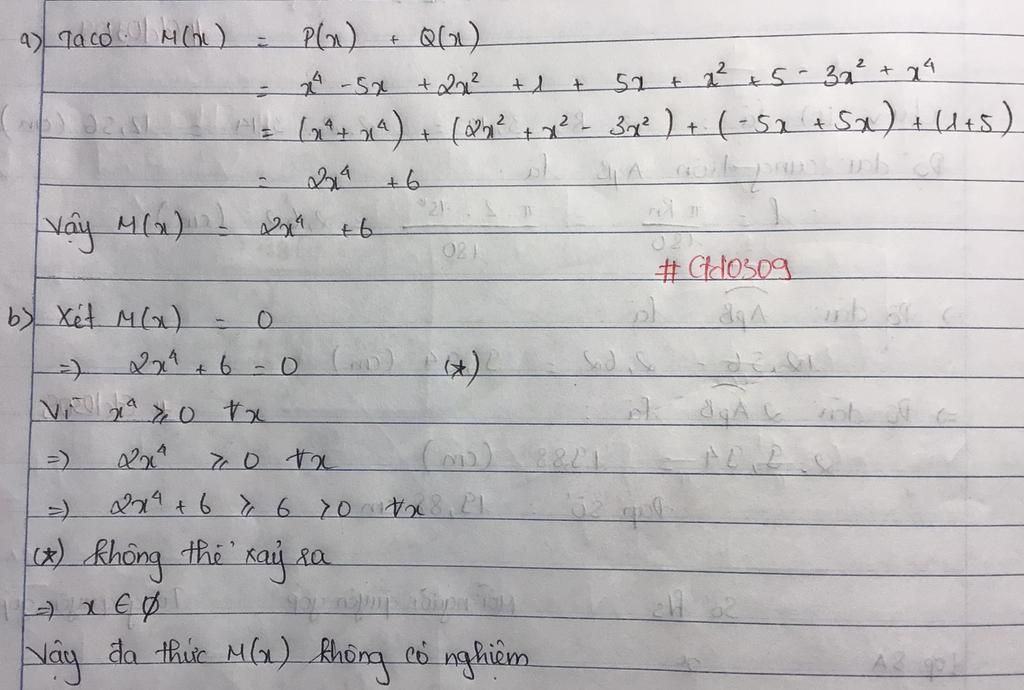 a) Ta có: M(x) = P(x) + Q(x)
= x⁴ - 5x + 2x² + 1 + 5x + x² + 5 - 3x² + x⁴
= (x⁴ + x⁴) + (2x² + x² - 3x²) + (-5x + 5x) + (1+5)
= 2x⁴ + 6
Vậy M(x) = 2x⁴ + 6
# Ctd0309
b) Xét M(x) = 0
=> 2x⁴ + 6 = 0 (*)
Vì x⁴ ⩾ 0 ∀x
=> 2x⁴ ⩾ 0 ∀x
=> 2x⁴ + 6 ⩾ 6 > 0 ∀x
(*) không thể xảy ra
=> x ∈ ∅
Vậy đa thức M(x) không có nghiệm